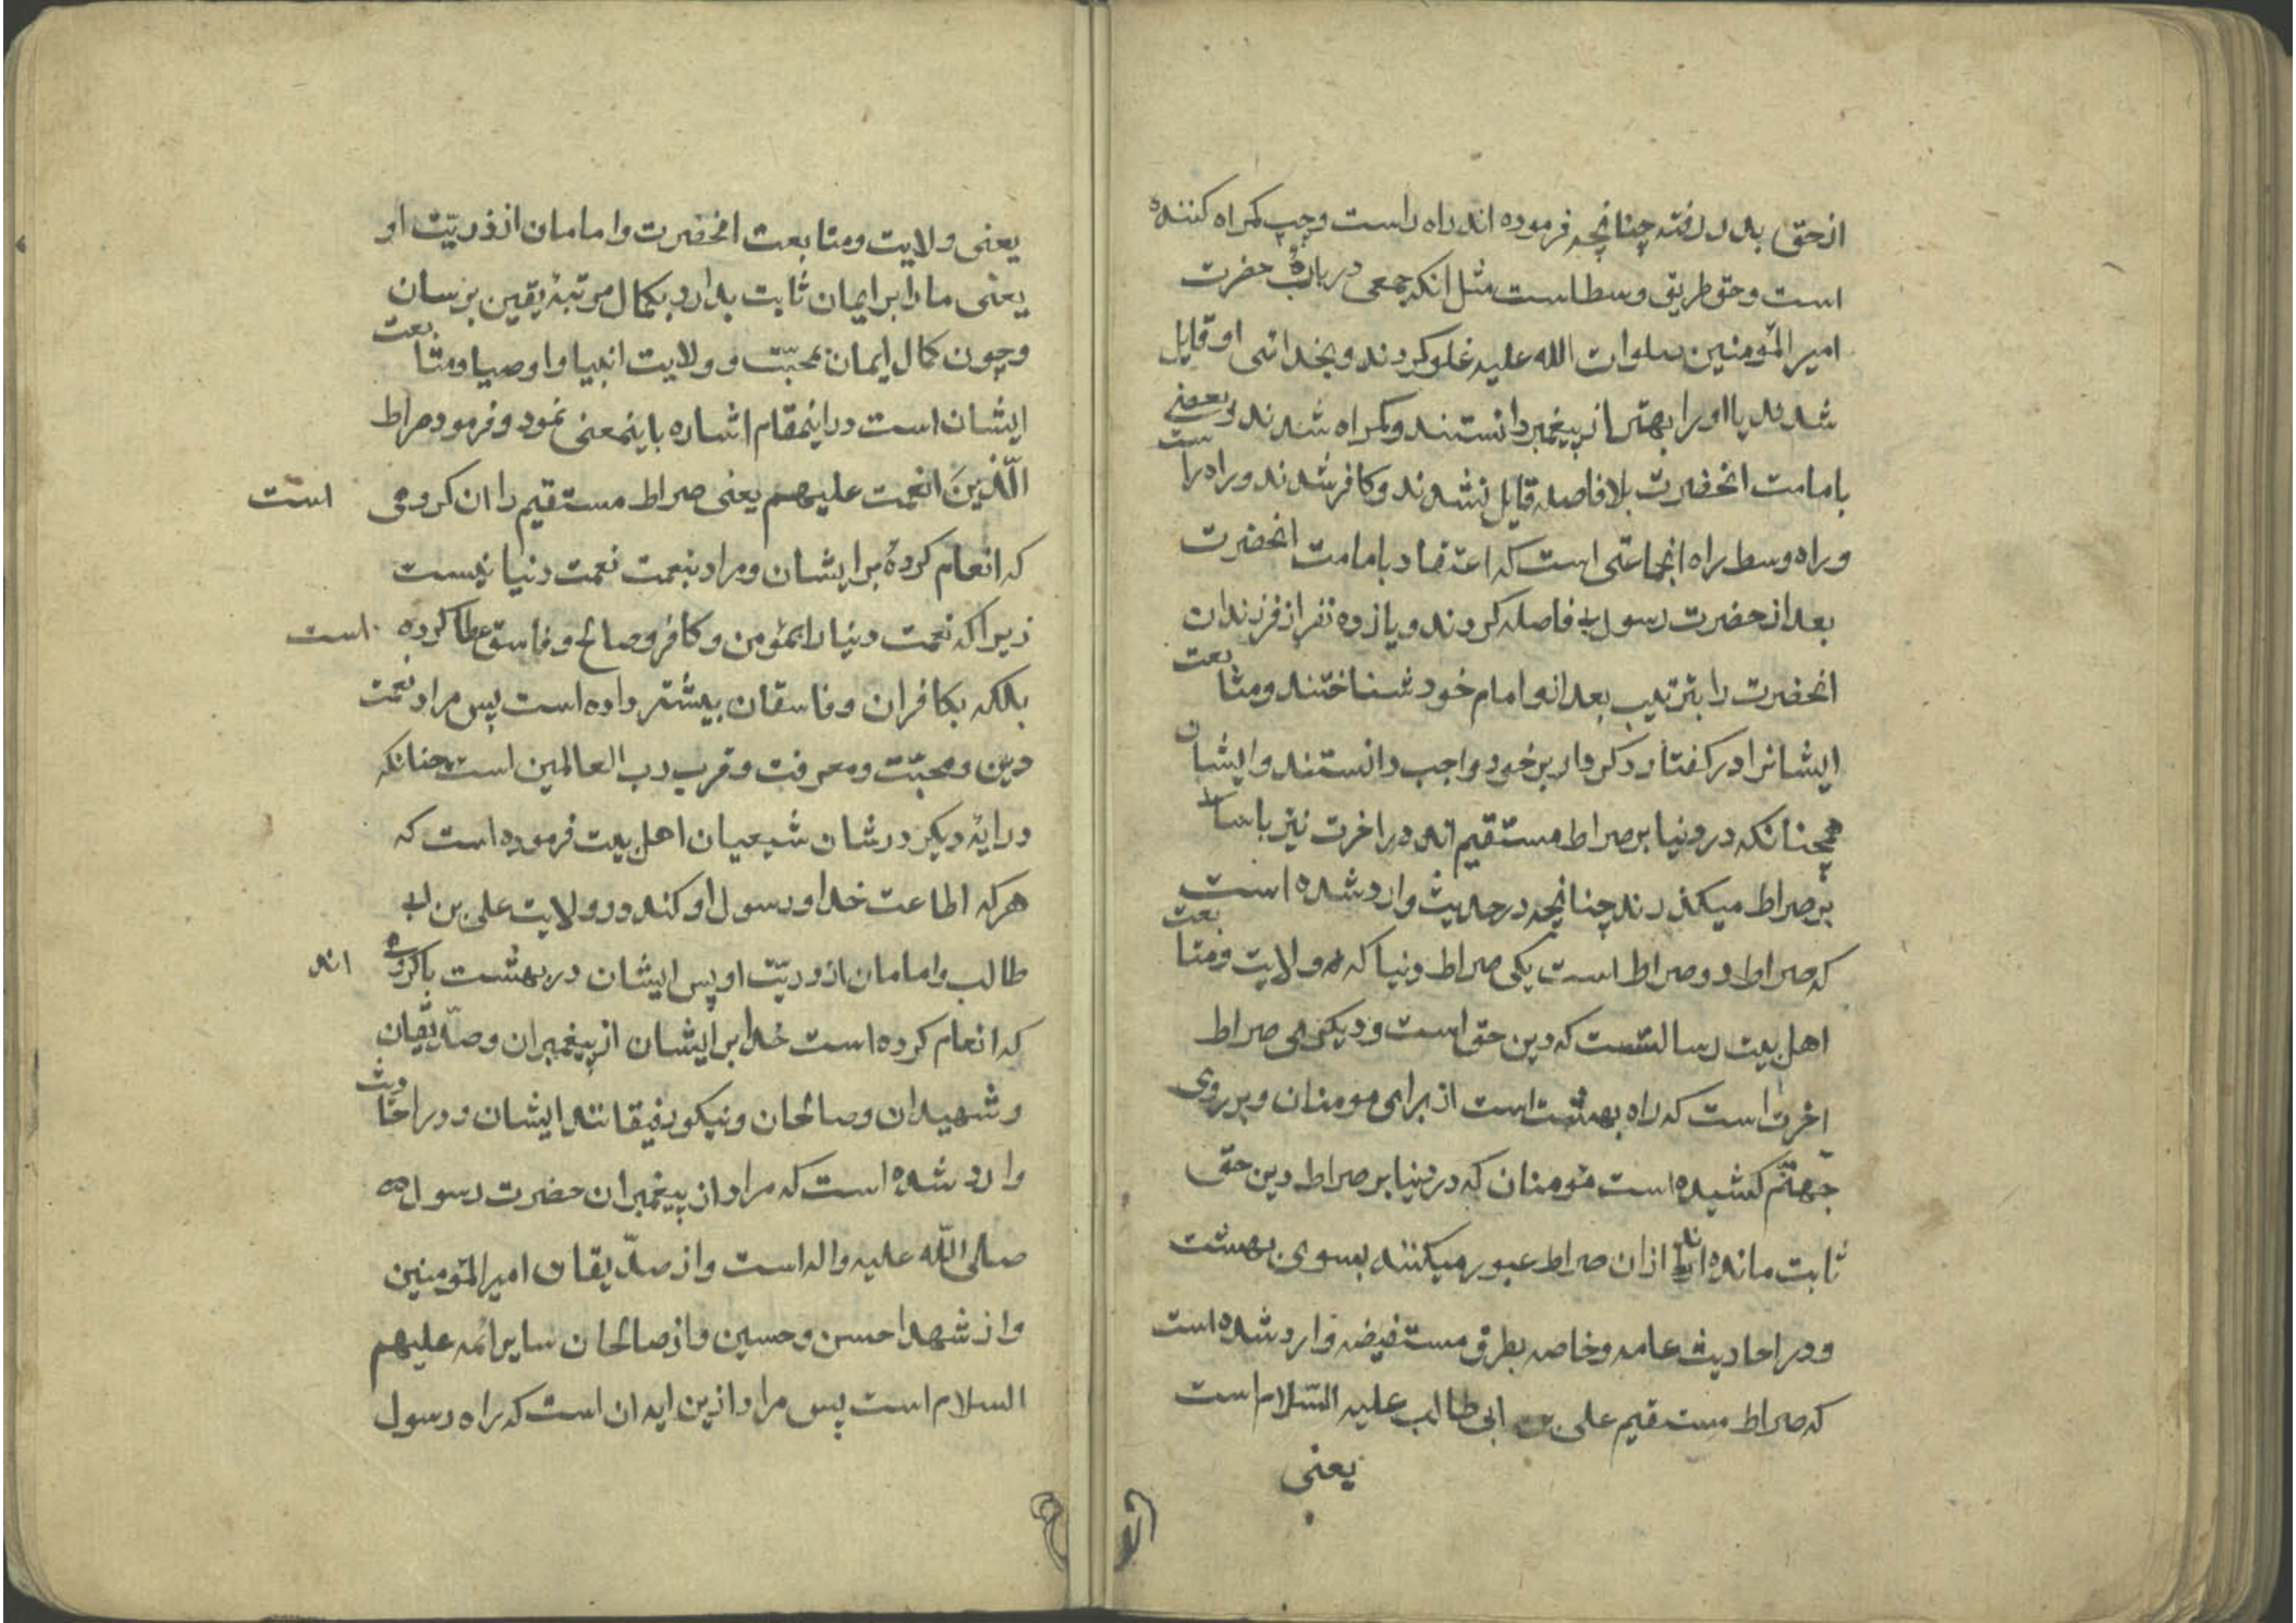 از حق بدر رفته چنانچه فرموده اند راه راست و چپ کمراه کننده
است و حق طریق وسط است مثل انکه جمعی در بارهٔ حضرت
امیر المؤمنین صلوات الله علیه غلو کردند و بخدائی او قایل
شدند یا او را بهتر از پیغمبر دانستند و کمراه شدند و بعضی
بامامت انحضرت بلا فاصله قایل نشدند و کافر شدند و راه راست
و راه وسط راه انجماعتی است که اعتقاد بامامت انحضرت
بعد از حضرت رسول بی فاصله کردند و یازده نفر از فرزندان
انحضرت را بترتیب بعد از او امام خود شناختند و متابعت
ایشانرا در کفتار و کردار بر خود واجب دانستند و ایشان
همچنانکه در دنیا بر صراط مستقیم اند در اخرت نیز باسانی
بر صراط میکذرند چنانچه در حدیث وارد شده است
که صراط دو صراط است یکی صراط دنیا که ولایت و متابعت
اهل بیت رسالتست که دین حق است و دیکری صراط
اخرت است که راه بهشت است از برای مومنان و بر روی
جهنّم کشیده است مؤمنان که در دنیا بر صراط دین حق
ثابت مانده اند ازان صراط عبور میکنند بسوی بهشت
و در احادیث عامه و خاصه بطرق مستفیضه وارد شده است
که صراط مستقیم علی بن ابی طالب علیه السّلام است
یعنی
یعنی ولایت و متابعت انحضرت و امامان از ذریّت او
یعنی ما را بر ایمان ثابت بدار و بکمال مرتبهٔ یقین برسان
و چون کمال ایمان بمحبّت و ولایت انبیا و اوصیا و متابعت
ایشان است در اینمقام اشاره باینمعنی نمود و فرمود صراط
الّذینَ انعمت علیهم یعنی صراط مستقیم راه ان کروهی است
که انعام کردهٔ بر ایشان و مراد بنعمت نعمت دنیا نیست
زیرا که نعمت دنیا را بمؤمن و کافر و صالح و فاسق عطا کرده است
بلکه بکافران و فاسقان بیشتر داده است پس مراد نعمت
دین و محبّت و معرفت و قرب رب العالمین است چنانکه
در ایهٔ دیکر در شان شیعیان اهل بیت فرموده است که
هر که اطاعت خدا و رسول او کند در ولایت علی بن ابی
طالب و امامان از ذریّت او پس ایشان در بهشت با کروهی اند
که انعام کرده است خدا بر ایشان از پیغمبران و صدّیقان
و شهیدان و صالحان و نیکو رفیقانند ایشان و در احادیث
وارد شده است که مراد از پیغمبران حضرت رسول
صلی اللّه علیه و اله است و از صدّیقان امیر المؤمنین
و از شهدا حسن و حسین و از صالحان سایر ائمه علیهم
السلام است پس مراد ازین ایه ان است که راه رسول